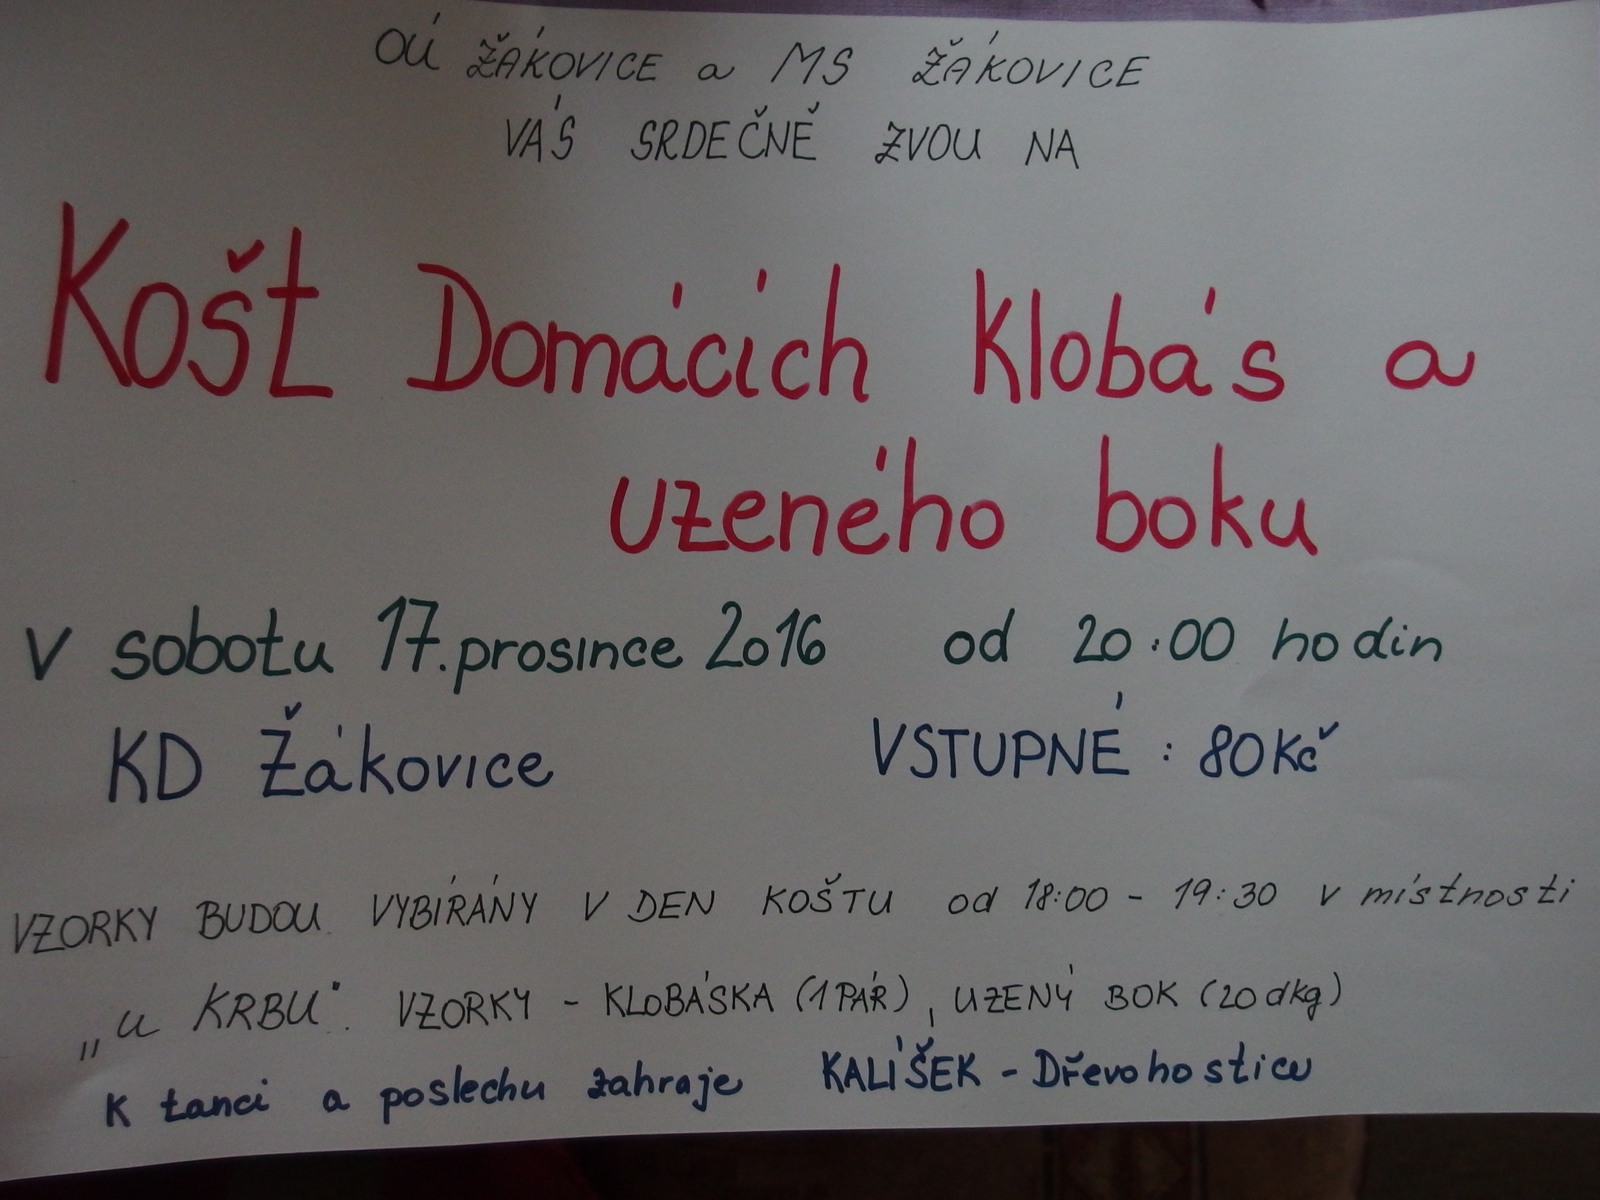 OÚ ŽÁKOVICE a MS ŽÁKOVICE
VÁS SRDEČNĚ ZVOU NA
Košt Domácích Klobás a
uzeného boku
v sobotu 17. prosince 2016 od 20:00 hodin
KD Žákovice VSTUPNÉ : 80Kč
VZORKY BUDOU VYBÍRÁNY V DEN KOŠTU od 18:00 - 19:30 v místnosti
„u KRBU". VZORKY - KLOBÁSKA (1 PÁR), UZENÝ BOK (20 dkg)
K tanci a poslechu zahraje KALÍŠEK - Dřevohostice